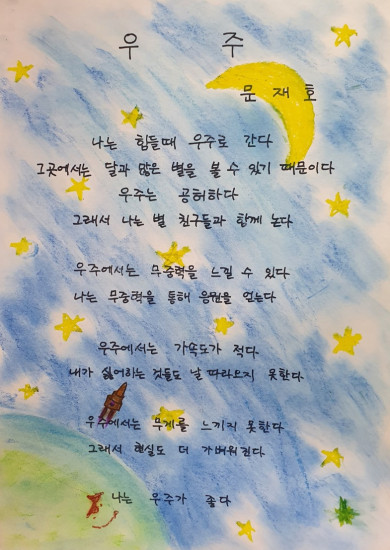 우 주
문 재 호
나는 힘들때 우주로 간다
그곳에서는 달과 많은 별을 볼 수 있기 때문이다
우주는 공허하다
그래서 나는 별 친구들과 함께 논다
우주에서는 무중력을 느낄 수 있다
나는 무중력을 통해 응원을 얻는다
우주에서는 가속도가 적다
내가 싫어하는 것들도 날 따라오지 못한다
우주에서는 무게를 느끼지 못한다
그래서 현실도 더 가벼워진다
나는 우주가 좋다